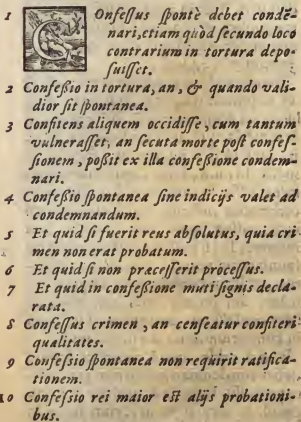 1 COnfeſſus ſpontè debet condē-
nari, etiam quòd ſecundo loco
contrarium in tortura depo-
ſuiſſet.
2 Confeßio in tortura, an, & quando vali-
dior ſit ſpontanea.
3 Confitens aliquem occidiſſe, cum tantum
vulneraſſet, an ſecuta morte poſt confeſ-
ſionem, poßit ex illa confeßione condem-
nari.
4 Confeßio ſpontanea ſine indicijs valet ad
condemnandum.
5 Et quid ſi fuerit reus abſolutus, quia cri
men non erat probatum.
6 Et quid ſi non præceſſerit proceſſus.
7 Et quid in confeßione muti ſignis decla-
rata.
8 Confeſſus crimen, an cenſeatur confiteri
qualitates.
9 Confeſsio ſpontanea non requirit ratifica-
tionem.
10 Confeſsio rei maior eſt alijs probationi-
bus.